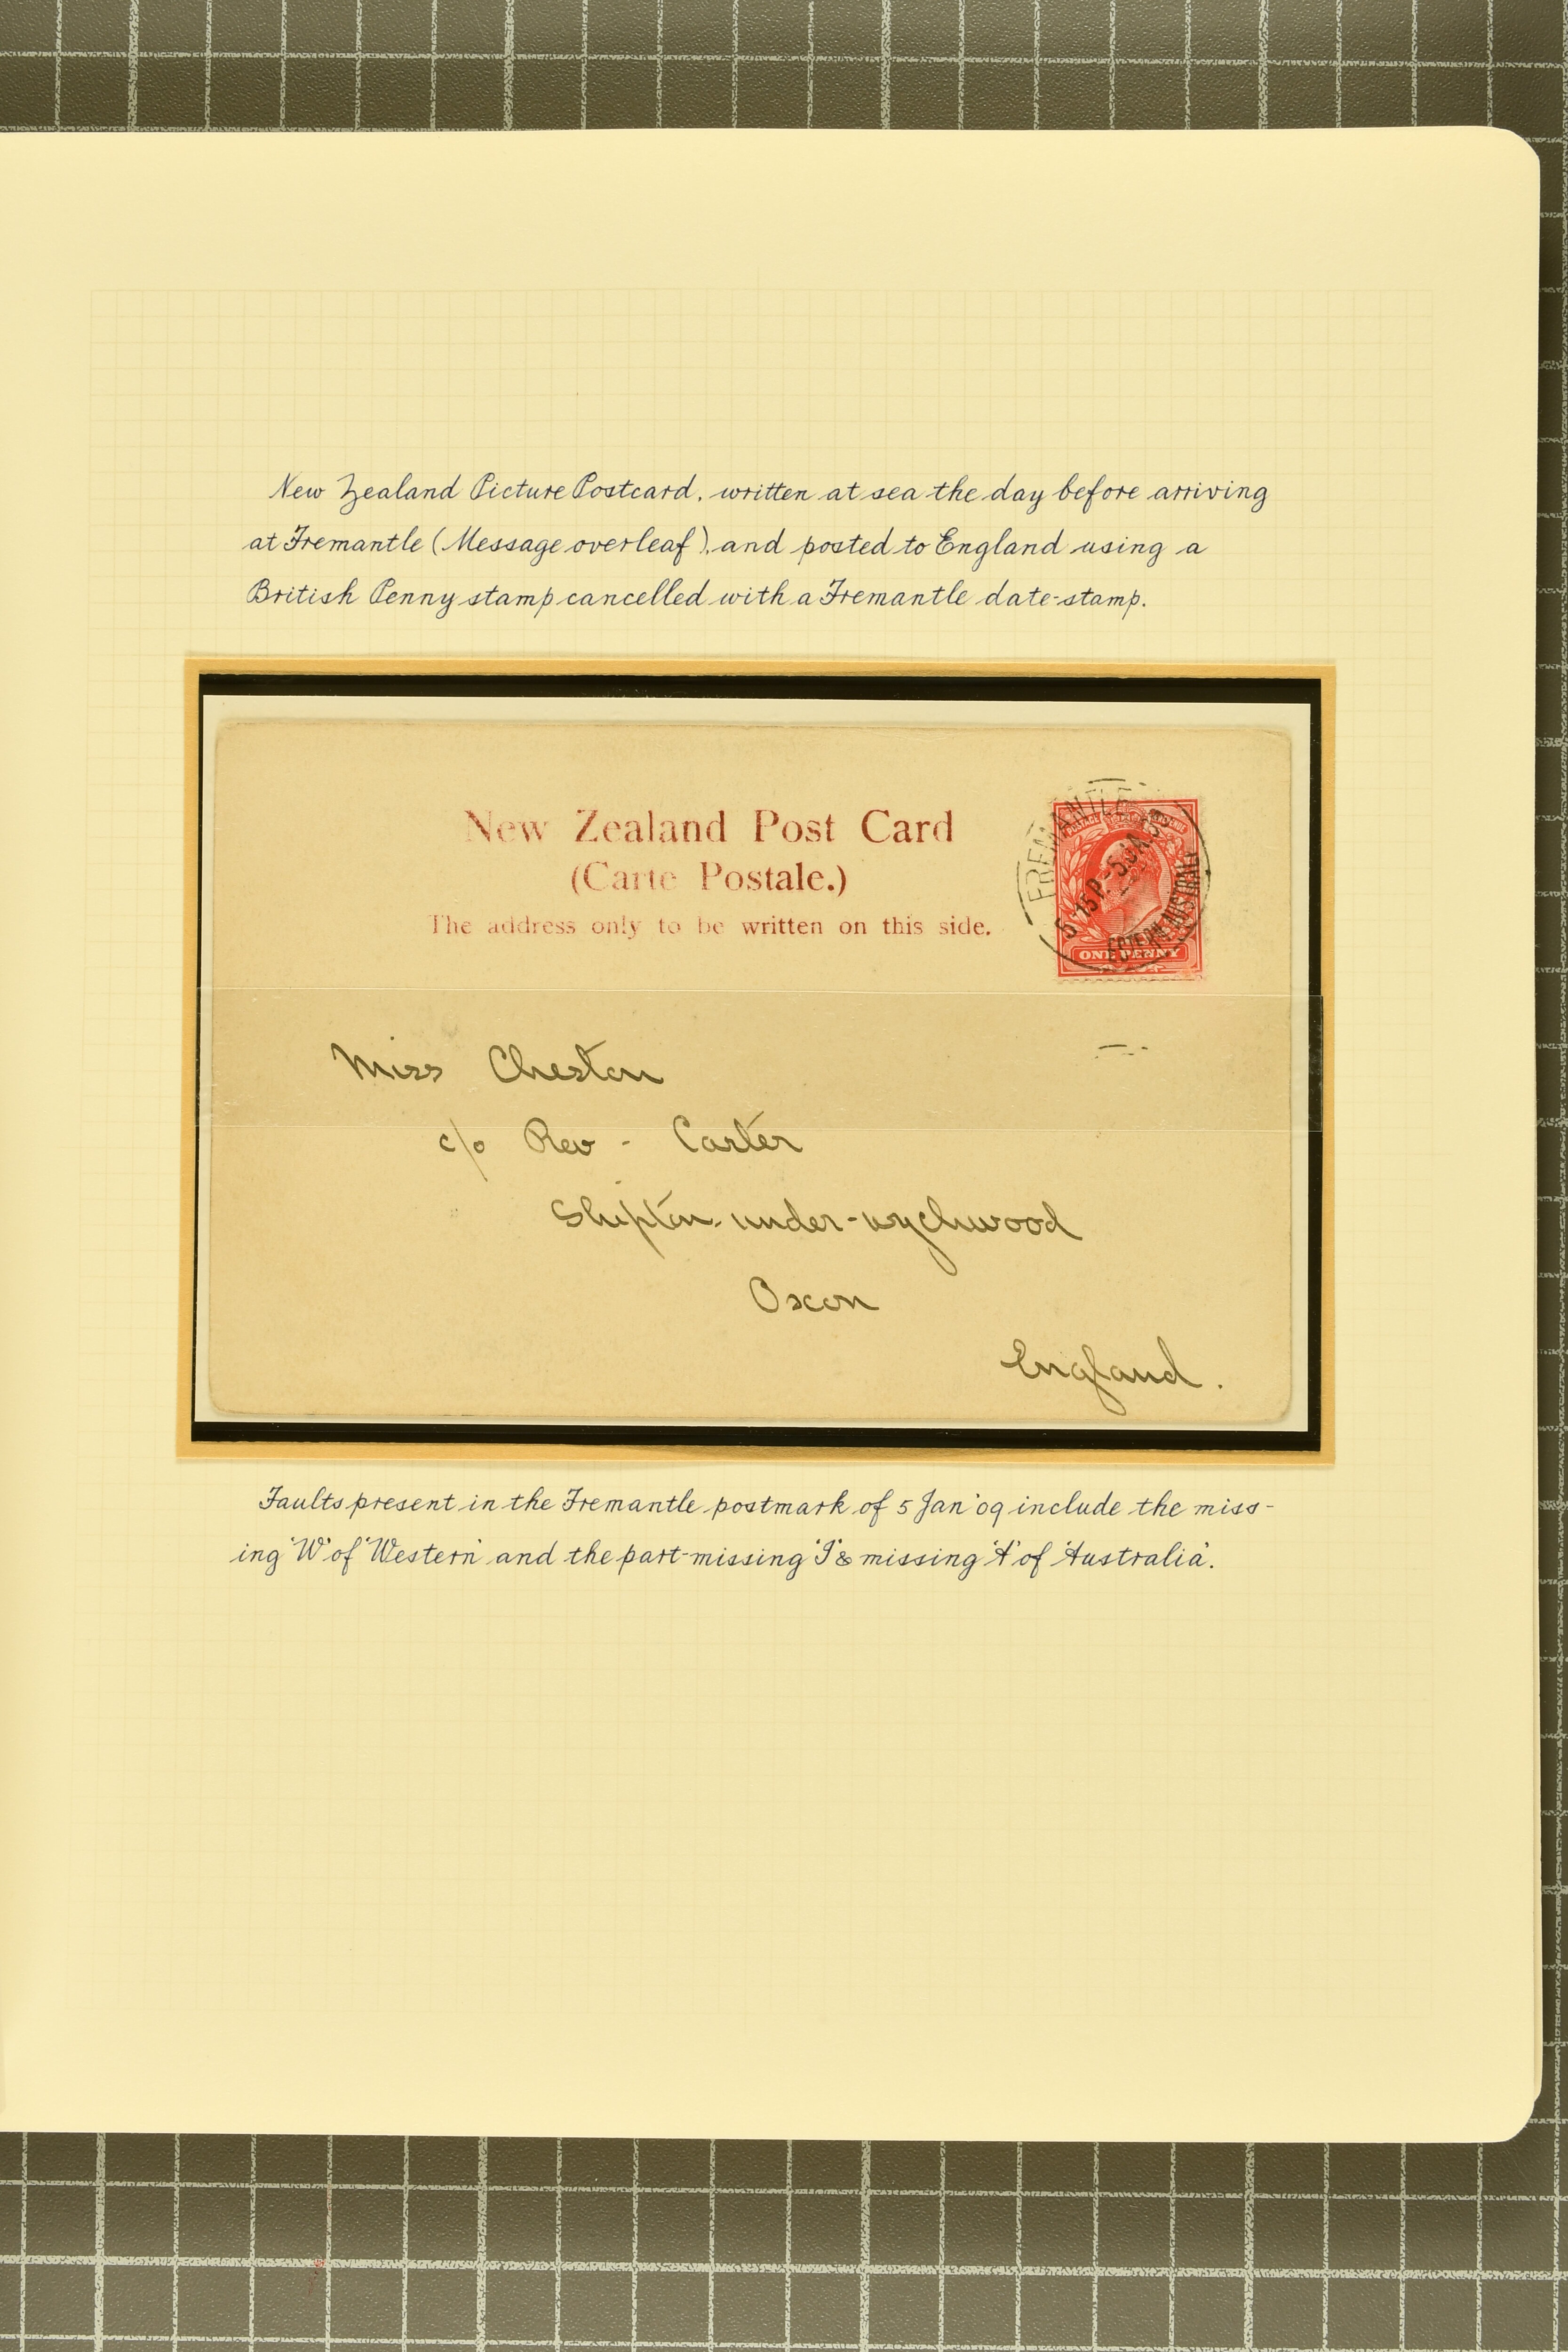 New Zealand Picture Postcard, written at sea the day before arriving
at Fremantle (Message overleaf), and posted to England using a
British Penny stamp cancelled with a Fremantle date-stamp.
New Zealand Post Card
(Carte Postale.)
The address only to be written on this side.
FREMANTLE
5 15 P. - 5. JA. 09
ESTERN AUSTRALI
ONE PENNY
Miss Cheston
c/o Rev - Carter
Shipton-under-wychwood
Oxon
England.
Faults present in the Fremantle postmark of 5 Jan '09 include the miss-
ing 'W' of 'Western' and the part-missing 'I' & missing 'A' of 'Australia'.